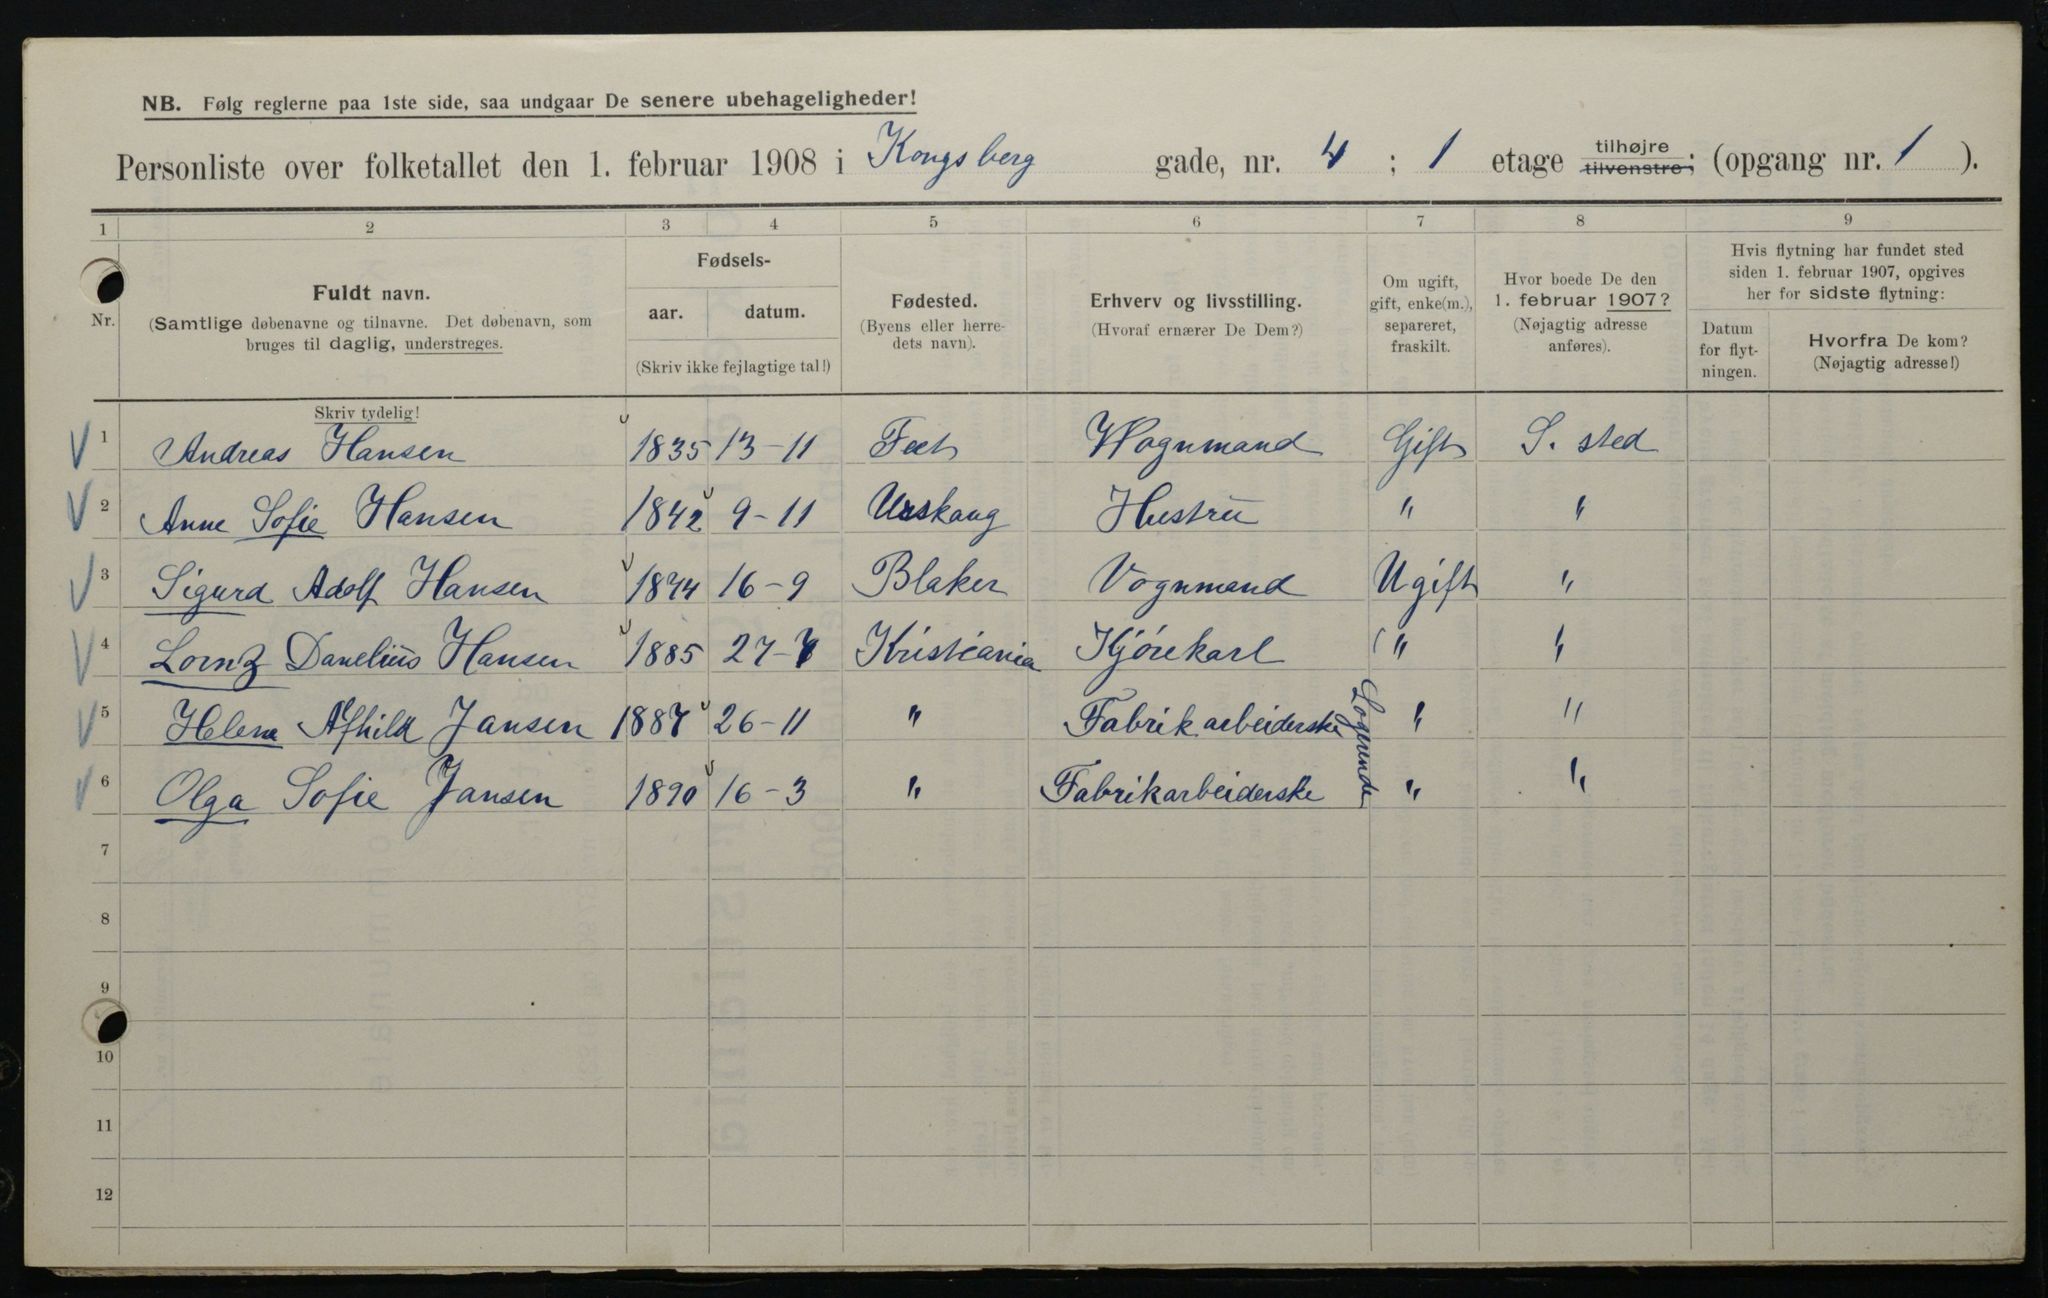 NB. Følg reglerne paa 1ste side, saa undgaar De senere ubehageligheder!
Personliste over folketallet den 1. februar 1908 i Kongsberg gade, nr. 4 ; 1 etage tilhøjre tilvenstre; (opgang nr. 1 ).
1 2 3 4 5 6 7 8 9
Nr.
Fuldt navn.
(Samtlige døbenavne og tilnavne. Det døbenavn, som
bruges til daglig, understreges.
Fødsels-
aar. datum.
(Skriv ikke fejlagtige tal!)
Fødested.
(Byens eller herre-
dets navn).
Erhverv og livsstilling.
(Hvoraf ernærer De Dem?)
Om ugift,
gift, enke(m.),
separeret,
fraskilt.
Hvor boede De den
1. februar 1907?
(Nøjagtig adresse
anføres).
Hvis flytning har fundet sted
siden 1. februar 1907, opgives
her for sidste flytning:
Datum
for flyt-
ningen.
Hvorfra De kom?
(Nøjagtig adresse!)
Skriv tydelig!
1 Andreas Hansen 1835 13-11 Fet Wognmand Gift S. sted
2 Anne Sofie Hansen 1842 9-11 Urskaug Hustru " "
3 Sigurd Adolf Hansen 1874 16-9 Blaker Vognmand Ugift "
4 Danelius Hansen 1885 27-7 Kristiania Kjørekarl " "
5 Helene Jansen 1887 26-11 " Fabrikarbeiderske " "
Logerende
6 Olga Sofie Jansen 1890 16-3 " Fabrikarbeiderske " "
7
8
9
10
11
12